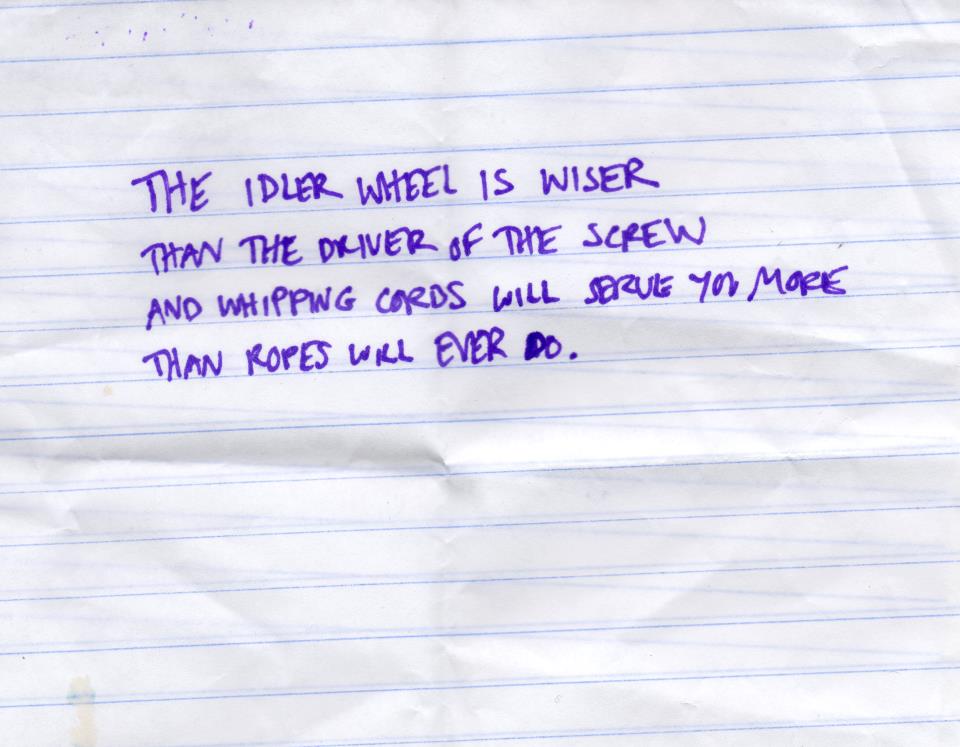 THE IDLER WHEEL IS WISER
THAN THE DRIVER OF THE SCREW
AND WHIPPING CORDS WILL SERVE YOU MORE
THAN ROPES WILL EVER DO.